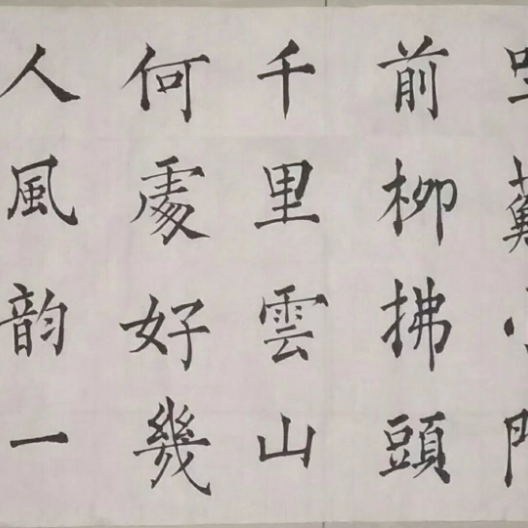 前柳拂頭
千里雲山
何處好幾
人風韵一